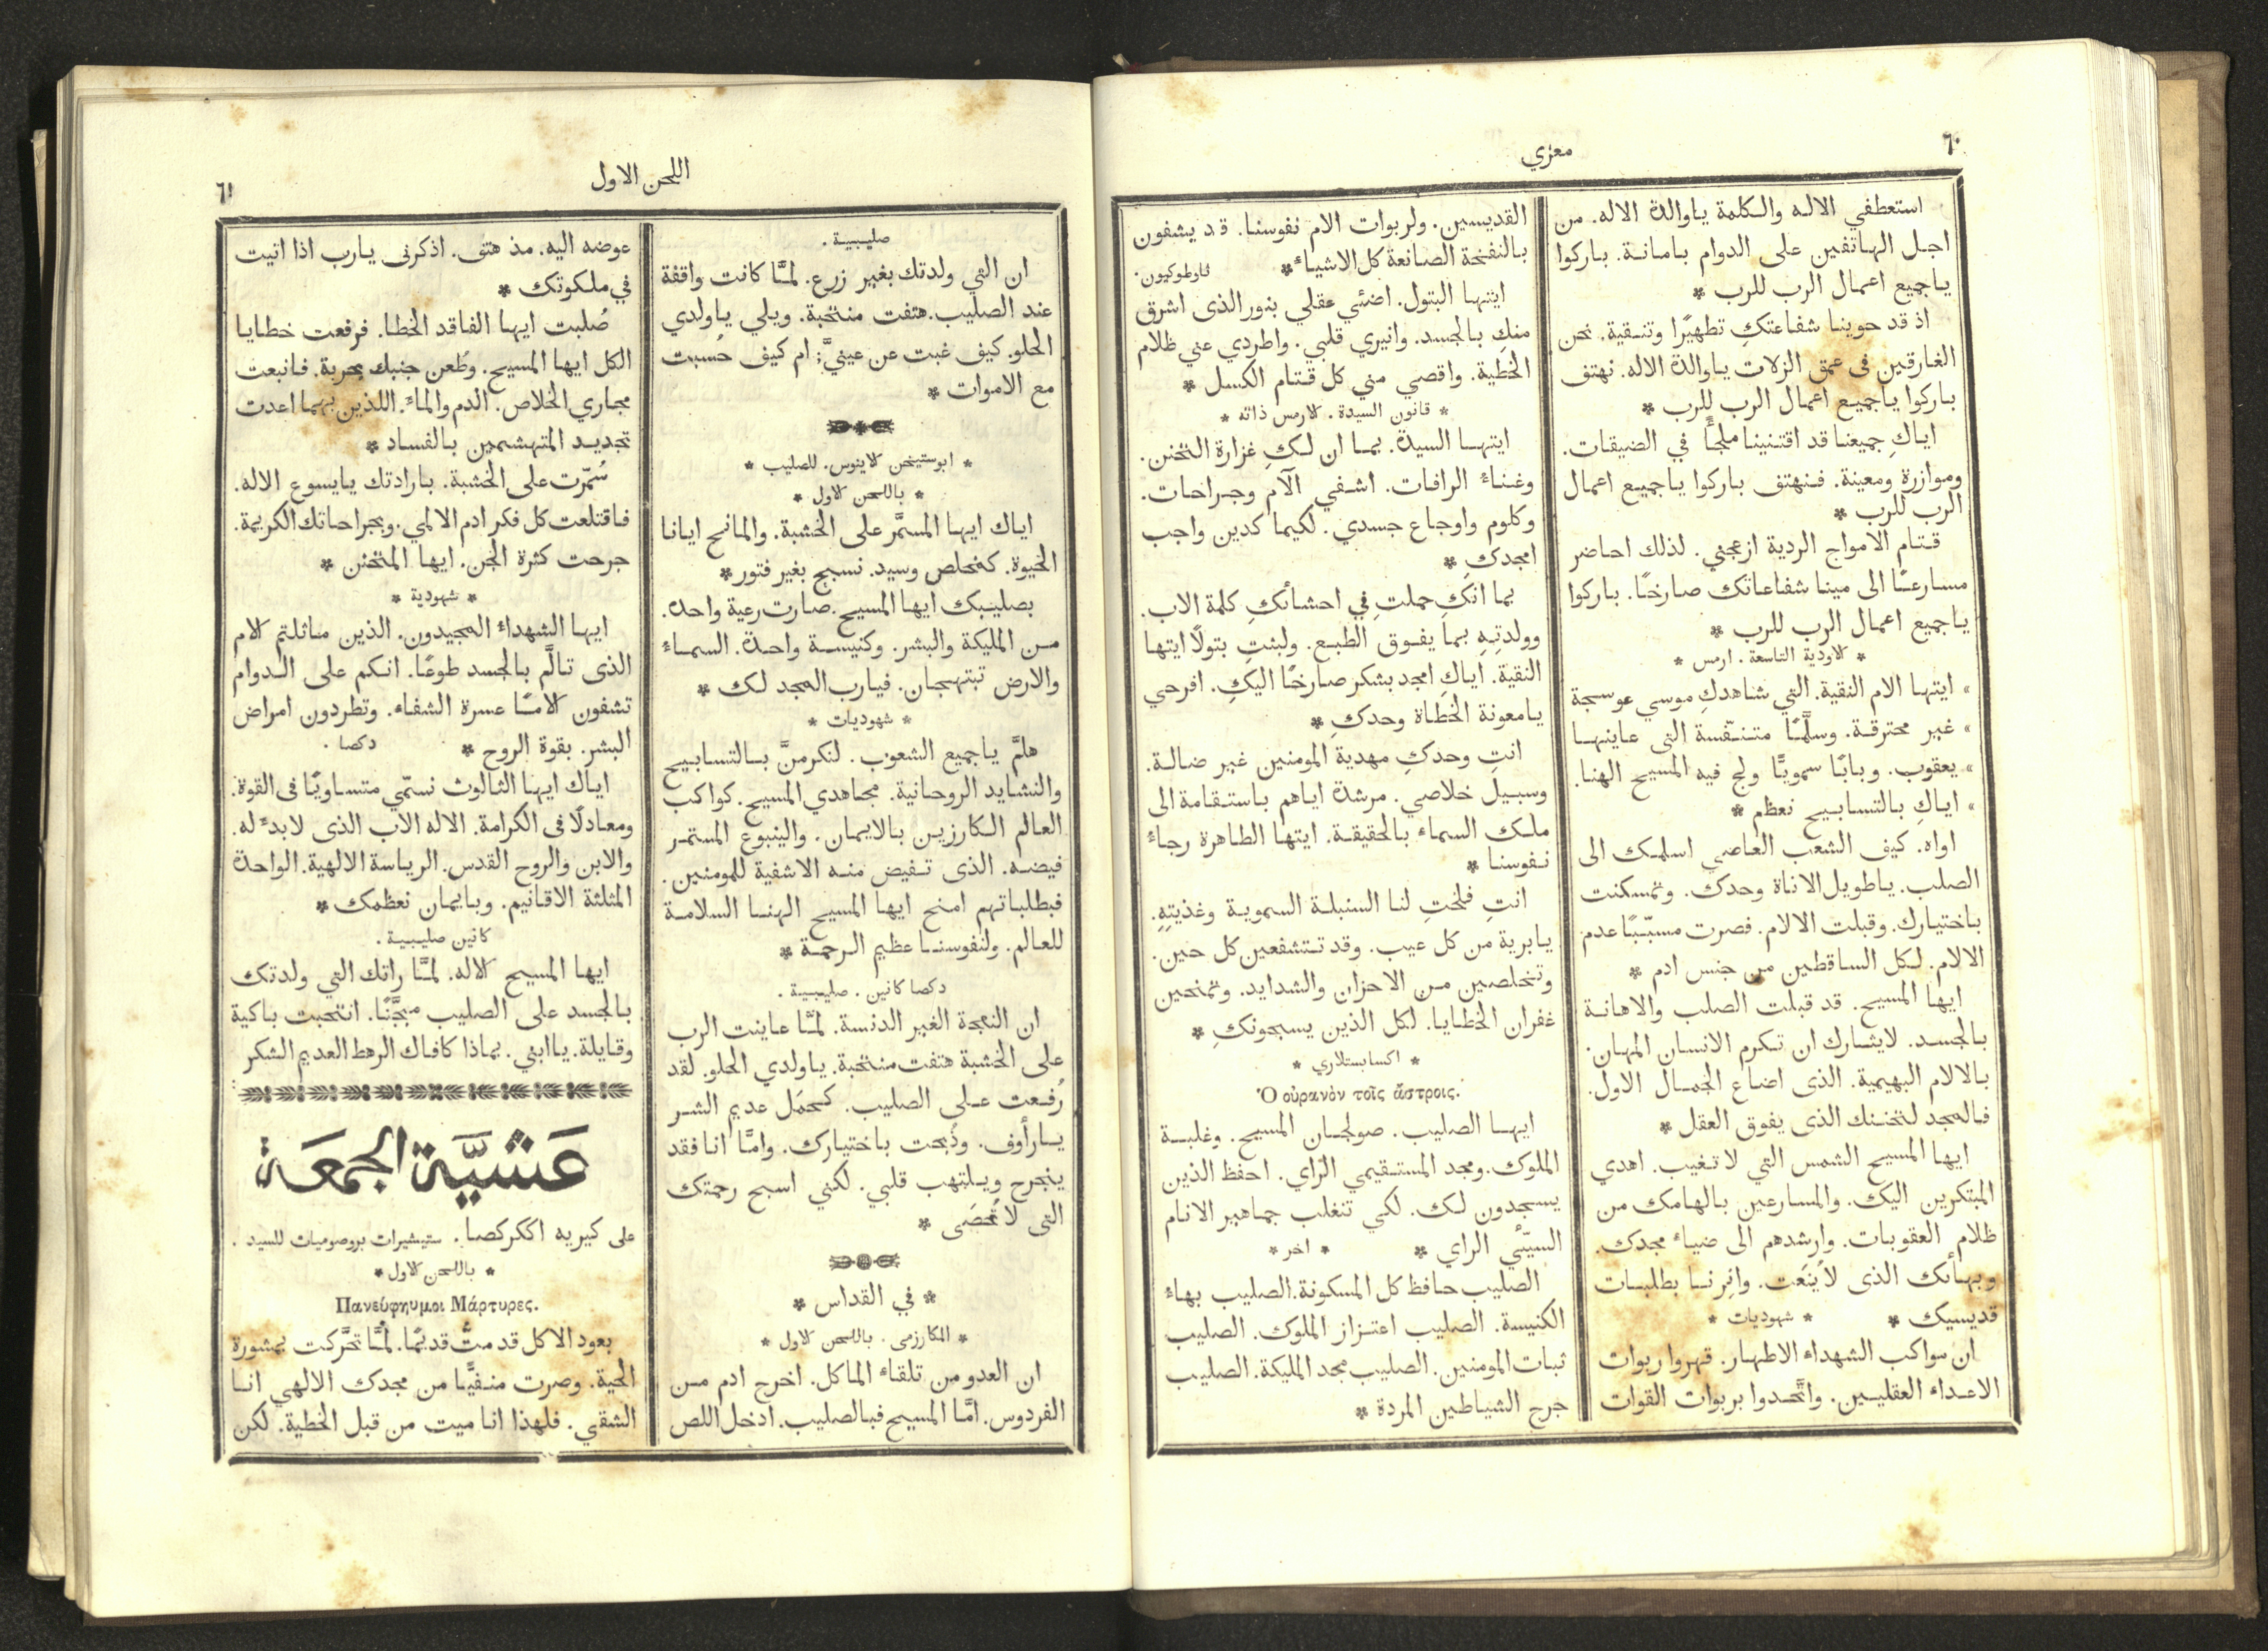 ٦٠
معزي
استعطفي الاله والكلمة ياوالدة الاله. من
اجل الهاتفين على الدوام بامانة. باركوا
ياجميع اعمال الرب للرب *
اذ قد حوينا شفاعتكِ تطهيرًا وتنقية. نحن
الغارقين فى عمق الزلات ياوالدة الاله. نهتف
باركوا ياجميع اعمال الرب للرب *
اياكِ جميعنا قد اقتنينا ملجأً في الضيقات.
وموازرة ومعينة. فنهتف باركوا ياجميع اعمال
الرب للرب *
قتام الامواج الردية ازعجني. لذلك احاضر
مسارعًا الى مينا شفاعاتك صارخًا. باركوا
ياجميع اعمال الرب للرب *
* لاودية التاسعة. ارمس *
» ايتها الام النقية. التي شاهدكِ موسي عوسجة
» غير محترقة. وسلَّمًا متنفّسة التى عاينها
» يعقوب. وبابًا سمويًّا ولج فيه المسيح الهنا.
» اياكِ بالتسابيح نعظم *
اواه. كيف الشعب العاصي اسلمك الى
الصلب. ياطويل الاناة وحدك. وتمسكنت
باختيارك. وقبلت الالام. فصرت مسبّبًا عدم
الالام. لكل الساقطين من جنس ادم *
ايها المسيح. قد قبلت الصلب والاهانة
بالجسد. لايثارك ان تكرم الانسان المهان.
بالالام البهيمية. الذى اضاع الجمال الاول.
فالمجد لتحننك الذى يفوق العقل *
ايها المسيح الشمس التي لا تغيب. اهدي
المبتكرين اليك. والمسارعين بالهامك من
ظلام العقوبات. وارشدهم الى ضياء مجدك.
وبهائك الذى لا يُنعَت. وانِرنا بطلبات
قديسيك * * شهوديات *
ان مواكب الشهداء الاطهار. قهروا ربوات
الاعداء العقليين. واتَّحدوا بربوات القوات
القديسين. ولربوات الام نفوسنا. قد يشفون
بالنفخة الصانعة كل الاشياء * ثاوطوكيون.
ايتها البتول. اضئي عقلي بنور الذى اشرق
منكِ بالجسد. وانيري قلبي. واطردي عني ظلام
الخطية. واقصي مني كل قتام الكسل *
* قانون السيدة. لارمس ذاته *
ايتها السيدة. بما ان لكِ غزارة التحنن.
وغناء الرافات. اشفي الآم وجراحات.
وكلوم واوجاع جسدي. لكيما كدين واجب
امجدكِ *
بما انكِ حملتِ في احشائكِ كلمة الاب.
وولدتِهِ بما يفوق الطبع. ولبثتِ بتولًا ايتها
النقية. اياكِ امجد بشكر صارخًا اليكِ. افرحي
يامعونة الخطاة وحدكِ *
انتِ وحدكِ مهدية المومنين غير ضالة.
وسبيل خلاصي. مرشدة اياهم باستقامة الى
ملك السماء بالحقيقة. ايتها الطاهرة رجاء
نفوسنا *
انتِ فلحتِ لنا السنبلة السموية وغذيتِهِ.
يابرية من كل عيب. وقد تتشفعين كل حين.
وتخلصين من الاحزان والشدايد. وتمنحين
غفران الخطايا. لكل الذين يسبحونكِ *
* اكسابستلاري *
Ὁ οὐρανὸν τοῖς ἄστροις.
ايها الصليب. صولجان المسيح. وغلبة
الملوك. ومجد المستقيمي الرّاي. احفظ الذين
يسجدون لك. لكي تنغلب جماهير الانام
السيّئي الراي * * اخر *
الصليب حافظ كل المسكونة. الصليب بهاء
الكنيسة. الصليب اعتزاز الملوك. الصليب
ثبات المومنين. الصليب مجد المليكة. الصليب
جرح الشياطين المردة *
اللحن الاول
٦١
صليبية.
ان التي ولدتك بغير زرع. لمَّا كانت واقفة
عند الصليب. هتفت منتحبة. ويلي ياولدي
الحلو. كيف غبت عن عينيَّ; ام كيف حُسبت
مع الاموات *
* ابوستيخن لاينوس. للصليب *
* باللحن لاول *
اياك ايها المسمَّر على الخشبة. والمانح ايانا
الحيوة. كمخلص وسيد. نسبح بغير فتور *
بصليبك ايها المسيح. صارت رعية واحدة.
من المليكة والبشر. وكنيسة واحدة. السماء
والارض تبتهجان. فيارب المجد لك *
* شهوديات *
هلمَّ ياجميع الشعوب. لنكرمنَّ بالتسابيح
والنشايد الروحانية. مجاهدي المسيح. كواكب
العالم الكارزين بالايمان. والينبوع المستمر
فيضه. الذى تفيض منه الاشفية للمومنين.
فبطلباتهم امنح ايها المسيح الهنا السلامة
للعالم. ولنفوسنا عظيم الرحمة *
دكصا كانين. صليبية.
ان النعجة الغير الدنسة. لمَّا عاينت الرب
على الخشبة هتفت منتحبة. ياولدي الحلو. لقد
رُفعت على الصليب. كحمَل عديم الشر
يارأوف. وذُبحت باختيارك. وامَّا انا فقد
ينجرح ويلتهب قلبي. لكني اسبح رحمتك
التى لا تُحصَى *
* في القداس *
* المكارزمى. باللحن لاول *
ان العدو من تلقاء الماكل. اخرج ادم من
الفردوس. امَّا المسيح فبالصليب. ادخل اللص
عوضه اليه. مذ هتف. اذكرنى يارب اذا اتيت
في ملكوتك *
صُلبت ايها الفاقد الخطا. فرفعت خطايا
الكل ايها المسيح. وطُعن جنبك بحربة. فانبعت
مجاري الخلاص. الدم والماء. اللذين بهما اعدت
تجديد المتهشمين بالفساد *
سُمّرت على الخشبة. بارادتك يايسوع الاله.
فاقتلعت كل فكر ادم الالمي. وبجراحاتك الكريمة.
جرحت كثرة الجن. ايها المتحنن *
* شهودية *
ايها الشهداء المجيدون. الذين ماثلتم لام
الذى تالَّم بالجسد طوعًا. انكم على الدوام
تشفون لامًا عسرة الشفاء. وتطردون امراض
البشر. بقوة الروح * دكصا.
اياك ايها الثالوث نسمّي متساويًا فى القوة.
ومعادلًا فى الكرامة. الاله الاب الذى لا بدء له.
والابن والروح القدس. الرياسة الالهية. الواحدة
المثلثة الاقانيم. وبايمان نعظمك *
كانين صليبية.
ايها المسيح لاله. لمَّا راتك التي ولدتك
بالجسد على الصليب مبجَّنًا. انتحبت باكية
وقايلة. ياابني. بماذا كافاك الرهط العديم الشكر
عَشيَّة الجمعَة
على كيريه اككركصا. ستيشيرات بروصوميات للسيد.
* باللحن لاول *
Πανεύφημοι Μάρτυρες.
بعود الاكل قد متُّ قديمًا. لمَّا تحَّركت بمشورة
الحية. وصرت منفيًّا من مجدك الالهي انا
الشقي. فلهذا انا ميت من قبل الخطية. لكن